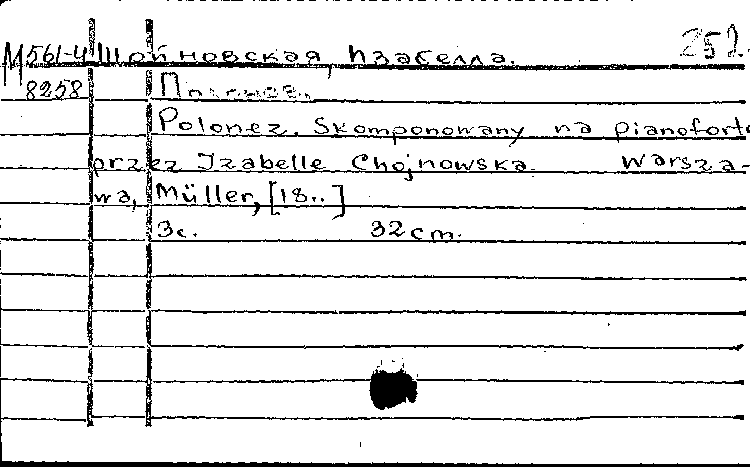 М561-4 Шойновская, Изабелла. 252.
8258 Полонез.
Polonez. Skomponowany na pianoforte
przez Izabelle Chojnowska. Warsza-
wa, Müller, [18..]
3c. 32cm.